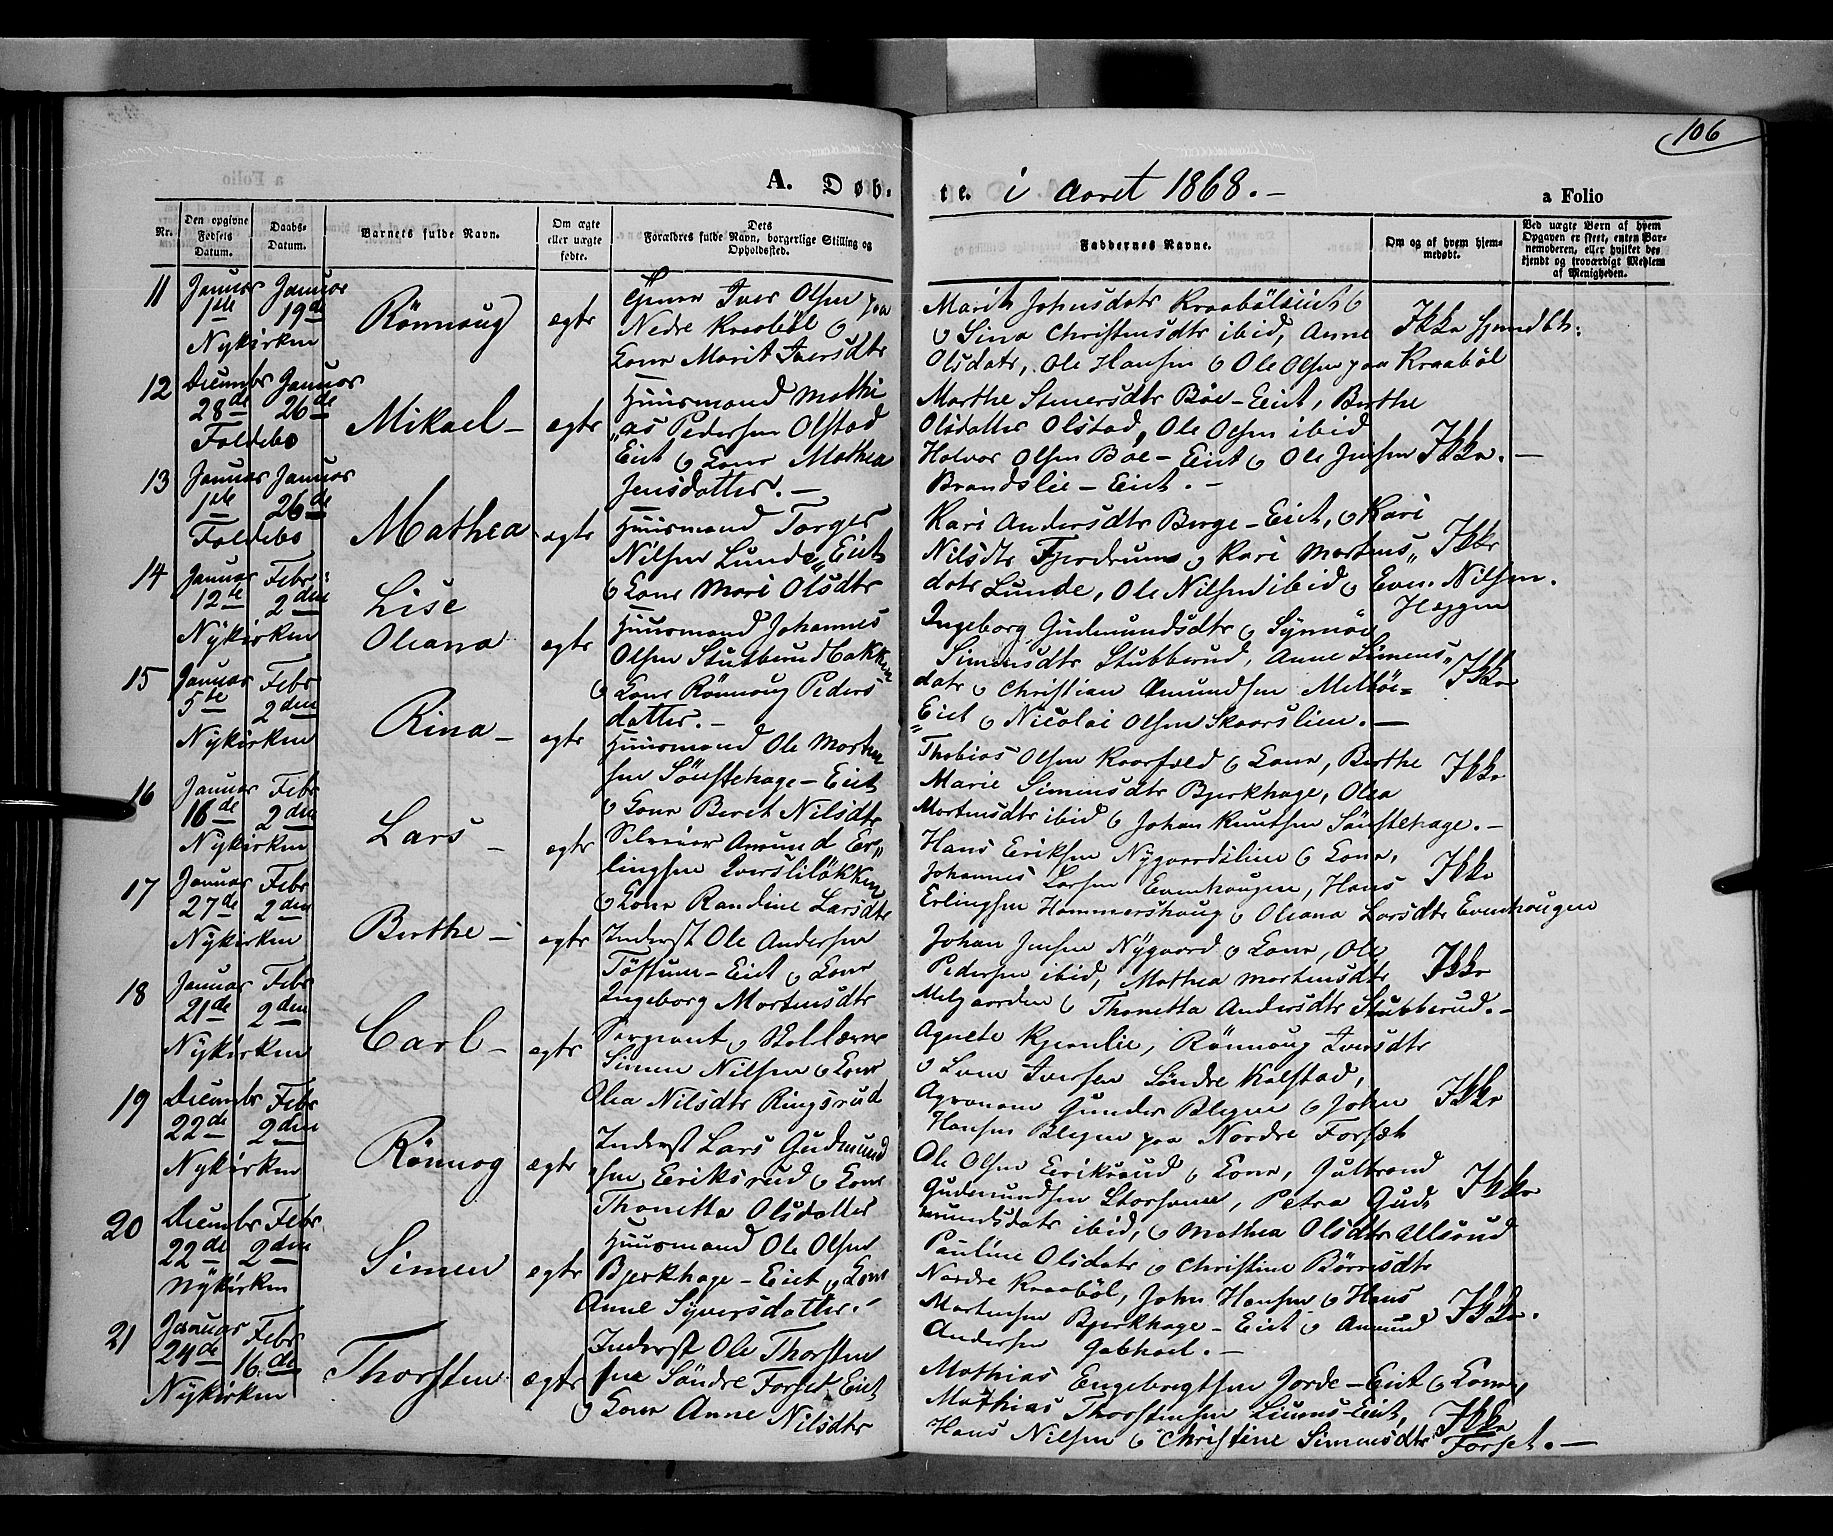 106
A. Døb-
te. i Aaret 1868.-
a Folio
Nr.
Den opgivne Fødsels Datum.
Daabs-Datum.
Barnets fulde Navn.
Om ægte eller uægte fødte.
Dets Forældres fulde Navn, borgerlige Stilling og Opholdssted.
Faddernes Navne.
Om og af hvem hjem-
medøbt.
Ved uægte Børn af hvem
Opgaven er skeet, enten Bar-
nemoderen, eller hvilket be-
kjendt og troværdigt Medlem
af Menigheden.
11
Januar Januar
1ste 19de
Nykirken
Rönnoug
ægte
Iver Olsen paa
Nedre Kraabøl og
Kone Marit Iversdtr
Marit Johnsdatr
og Sina Christensdtr ibid, Anne
Olsdatr, Ole Hansen og Ole Olsen paa Kraabøl
Ikke hjemdbt:
12
Decembr Januar
28de 26de
Foldebo
Mikael -
ægte
Huusmand Mathi
"as Pedersen Olstad
Eiet og Kone Mathea
Jensdatter. -
Marthe Simersdtr Böe - Eiet, Berthe
Olsdatter Olstad, Ole Olsen ibid
Halvor Olsen Böe - Eiet og Ole Jensen
Brandslie - Eiet. -
Ikke. -
13
Januar Januar
1ste 26de
Foldebo
Mathea
ægte
Huusmand Torger
Nilsen Lunde Eiet
og Kone Mari Olsdtr
Kari Andersdtr Berge - Eiet, og Kari
Nilsdtr Fjerdrum og Kari Mortens"
datr Lunde, Ole Nilsen ibid og Even Nilsen
Heggen
Ikke
14
Januar Febr:
12te 2den
Nykirken
Lise
Oleana
ægte
Huusmand Johannes
Olsen Stubberudbakken
og Kone Rönnoug Peders
datter. -
Ingeborg Gudmundsdtr og Synnöe
Simensdtr Stubberud, Anne Simens"
datr og Christian Amundsen Melböe=
"Eiet og Nicolai Olsen Skaarslien. -
Ikke
15
Januar Febr
5te 2den
Nykirken
Rina -
ægte
Huusmand Ole Morten
sen Sönstehage - Eiet
og Kone Beret Nilsdtr
Thobias Olsen og Kone, Berthe
Marie Simensdtr Bjerkhage, Olea
Mortensdtr ibid og Johan Knutsen Sönstehage. -
Ikke
16
Januar Febr
16de 2den
Nykirken
Lars -
ægte
Selveier Amund Er"
lingsen
og Kone Randine Larsdtr
Hans Eriksen Nygaardslien og Kone,
Johannes Larsen Evenhougen, Hans
Erlingsen Hammershoug og Oleana Larsdtr Evenhougen
Ikke
17
Januar Febr
27de 2den
Nykirken
Berthe -
ægte
Inderst Ole Andersen
Töftum - Eiet og Kone
Ingeborg Mortensdtr
Johan Jensen Nygaard og Kone, Ole
Pedersen ibid, Mathea Mortensdtr
Melgaarden og Thonetta Andersdtr Stubberud. -
Ikke
18
Januar Febr
21de 2den
Nykirken
Carl -
ægte
Sergeant og Skolelærer
Simen Nilsen og Kone
Olea Nilsdtr Ringsrud
Agnete Kjeanlie, Rönnoug Iversdtr
og Iversen Söndre Kalstad,
Agronom Gunder Blegen og John
Hansen Blegen paa Nordre Forset
Ikke
19
Decembr Febr
22de 2den
Nykirken
Rönnog
ægte
Inderst Lars Gudmund
"sen Eeriksrud og Kone
Thonetta Olsdatter
Ole Olsen Eeriksrud og Kone, Gulbrand
Gudmundsen, Petra Gud"
mundsdatr ibid, og Mathea Olsdtr
Ikke
20
Decembr Febr.
22de 2den
Nykirken
Simen
ægte
Huusmand Ole Olsen
Bjerkhage - Eiet og Kone
Anne Syversdatter. -
Pauline Olsdatr og Christine Börresdtr
Nordre Kraabøl, John Hansen og Hans
Mortensen Bjerkhage - Eiet og Amund
Andersen. -
Ikke.
21
Januar Febr
24de 16.de
Nykirken
Thorsten
ægte
Inderst Ole Thorsten
sen Söndre Forset Eiet
og Kone Anne Nilsdtr
Mathias Engebregtsen Jorde - Eiet og Kone,
Mathias Thorstensen Eiet,
Hans Nilsen og Christine Simensdtr Forset. -
Ikke